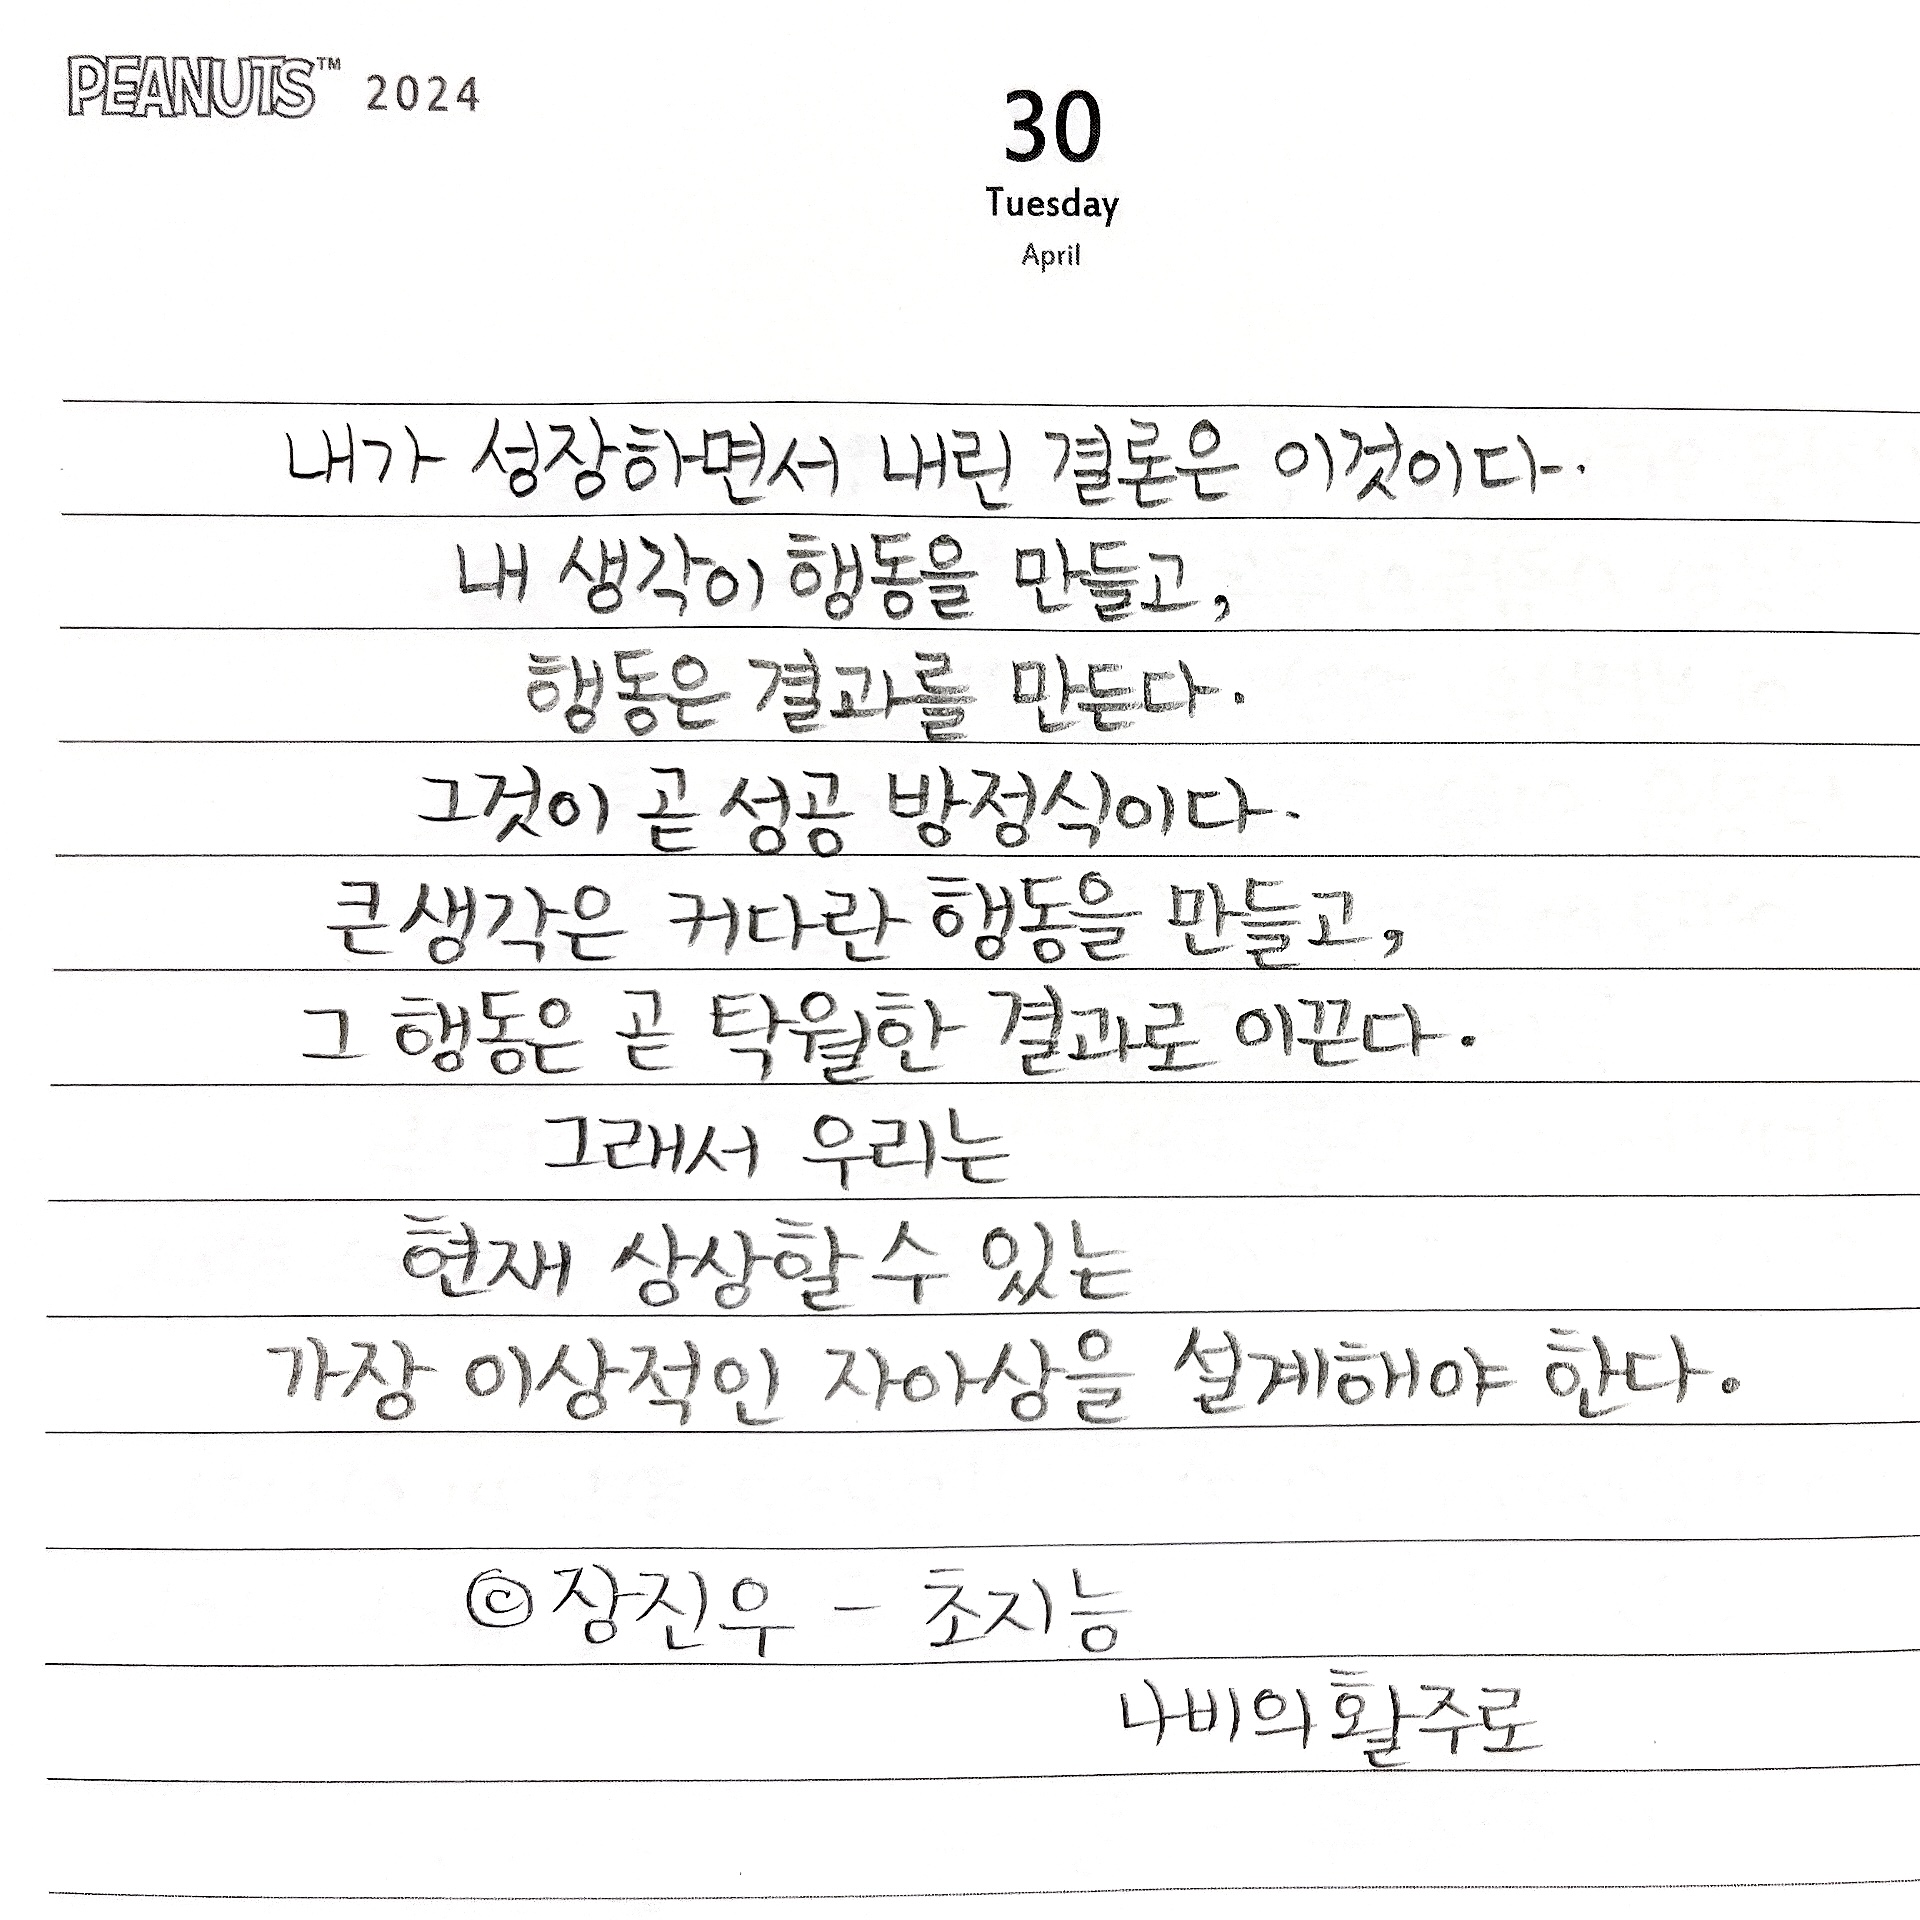 PEANUTS™ 2024
30
Tuesday
April
내가 성장하면서 내린 결론은 이것이다.
내 생각이 행동을 만들고,
행동은 결과를 만든다.
그것이 곧 성공 방정식이다.
큰 생각은 커다란 행동을 만들고,
그 행동은 곧 탁월한 결과로 이끈다.
그래서 우리는
현재 상상할 수 있는
가장 이상적인 자아상을 설계해야 한다.
©장진우 - 초지능
나비의 활주로